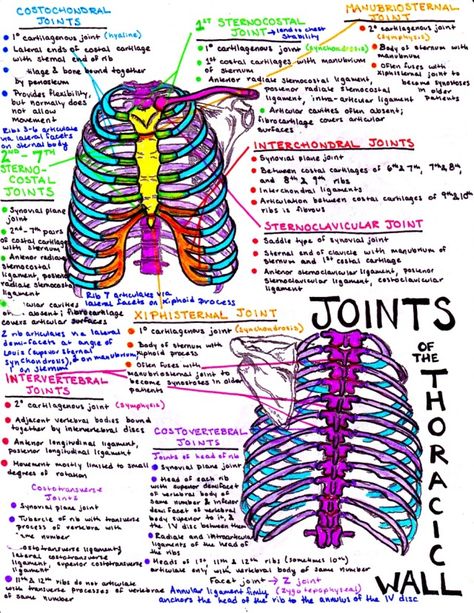 COSTOCHONDRAL
JOINTS
1° cartilagenous joint (hyaline)
Lateral ends of costal cartilage
with sternal end of rib
tilage & bone bound together
by periosteum
Provides flexibility
but normally does
not allow
movement
Ribs 3-6 articulate
via lateral facets
on sternal body
2ND - 7TH
STERNO-
COSTAL
JOINTS
Synovial plane
joint
2nd - 7th pairs
of costal cartilages
with sternum
Anterior radiate
sternocostal
ligament, posterior
radiate sternocostal
ligament
icular cavities
absent; fibrocartilage
covers articular surfaces
2 rib articulates via lateral
demi-facets at angle of
Louis (superior sternal
synchondrosis), & on manubrium,
on sternum
1ST STERNOCOSTAL
JOINT → lends to chest
stability
1° cartilagenous joint (synchondrosis)
1st costal cartilages with manubrium
of sternum
Anterior radiate sternocostal ligament,
posterior radiate sternocostal
ligament, intra-articular ligament
Articular cavities often absent;
fibrocartilage covers articular
surfaces
MANUBRIOSTERNAL
JOINT
2° cartilagenous joint
(symphysis)
Body of sternum with
manubrium
Often fuses with
xiphisternal joint to
become synostosis
in older
patients
INTERCHONDRAL JOINTS
Synovial plane joint
Between costal cartilages of 6th & 7th, 7th & 8th,
and 8th & 9th ribs
Interchondral ligaments
Articulation between costal cartilages of 9th & 10th
ribs is fibrous
STERNOCLAVICULAR JOINT
Saddle type of synovial joint
Sternal end of clavicle with manubrium of
sternum and 1st costal cartilage
Anterior sternoclavicular ligament, posterior
sternoclavicular ligament, costoclavicular
ligament
Rib 7 articulates via
lateral facets on xiphoid process
XIPHISTERNAL JOINT
1° cartilagenous joint (synchondrosis)
Body of sternum with
xiphoid process
Often fuses with
manubriosternal joint to
become synostoses in older
patients
JOINTS
OF
THE
THORACIC
WALL
INTERVERTEBRAL
JOINTS
2° cartilagenous joint (symphysis)
Adjacent vertebral bodies bound
together by intervertebral disc
Anterior longitudinal ligament,
posterior longitudinal ligament
Movement mostly limited to small
degrees of rotation
Costotransverse
Joints
Synovial plane joint
Tubercle of rib with transverse
process of vertebra with
same number
costotransverse ligament,
lateral costotransverse
ligament, superior costotransverse
ligament
11th & 12th ribs do not articulate
with transverse processes of vertebrae
of same number
COSTOVERTEBRAL
JOINTS
Joints of head of rib
Synovial plane joint
Head of each rib
with superior demifacet
of vertebral body of
same number & inferior
demifacet of vertebral
body superior to it, &
the IV disc between them
Radiate and intraarticular
ligaments of the head of
the ribs
Heads of 1st, 11th & 12th ribs (sometimes 10th)
articulate only with vertebral body of same number
Facet joint → Z joint
(zygotepophyseal)
Annular ligament firmly
anchors the head of the rib to the annulus of the IV disc